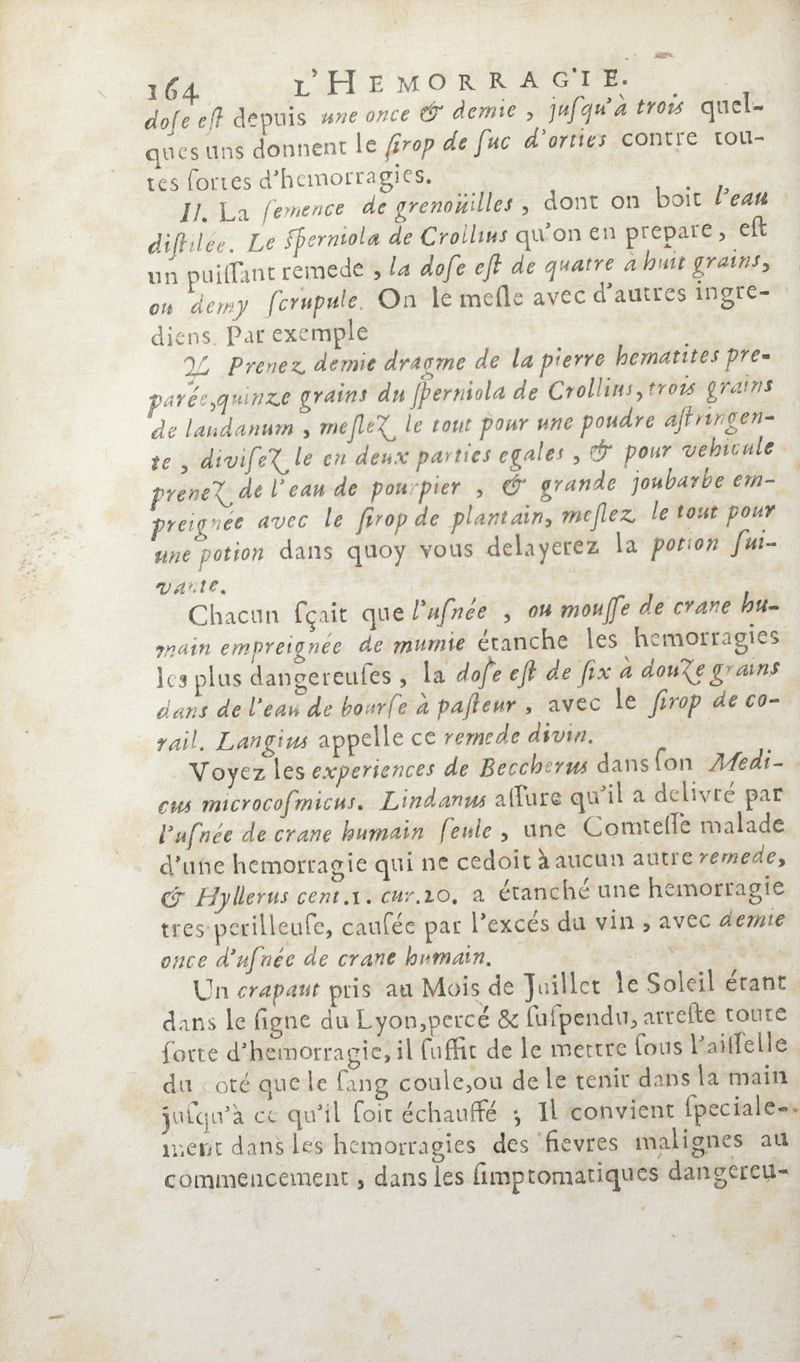 164 L'HEMORRAGIE.
dose est depuis une once & demie , jusqu'à trois quel-
ques uns donnent le sirop de suc d'orties contre tou-
tes sortes d'hemorragies.
II. La semence de grenoüilles , dont on boit l'eau
distilée. Le sperniola de Crollius qu'on en prepare , est
un puissant remede , la dose est de quatre à huit grains,
ou demy scrupule. On le mesle avec d'autres ingre-
diens. Par exemple
♃ Prenez demie dragme de la pierre hematites pre-
parée,quinze grains du sperniola de Crollius, trois grains
de laudanum , meslez le tout pour une poudre astringen-
te , divisez le en deux parties egales , & pour vehicule
prenez de l'eau de pourpier , & grande joubarbe em-
preignée avec le sirop de plantain, meslez le tout pour
une potion dans quoy vous delayerez la potion sui-
vante.
Chacun sçait que l'usnée , ou mousse de crane hu-
main empreignée de mumie étanche les hemorragies
les plus dangereuses , la dose est de six à douze grains
dans de l'eau de bourse à pasteur , avec le sirop de co-
rail. Langius appelle ce remede divin.
Voyez les experiences de Beccherus dans son Medi-
cus microcosmicus. Lindanus assure qu'il a delivré par
l'usnée de crane humain seule , une Comtesse malade
d'une hemorragie qui ne cedoit à aucun autre remede,
& Hyllerus cent.1. cur.20. a étanché une hemorragie
tres perilleuse, causée par l'excés du vin , avec demie
once d'usnée de crane humain.
Un crapaut pris au Mois de Juillet le Soleil étant
dans le signe du Lyon,percé & suspendu, arreste toute
sorte d'hemorragie, il suffit de le mettre sous l'aisselle
du coté que le sang coule,ou de le tenir dans la main
jusqu'à ce qu'il soit échauffé ; Il convient speciale-
ment dans les hemorragies des fievres malignes au
commencement , dans les simptomatiques dangereu-